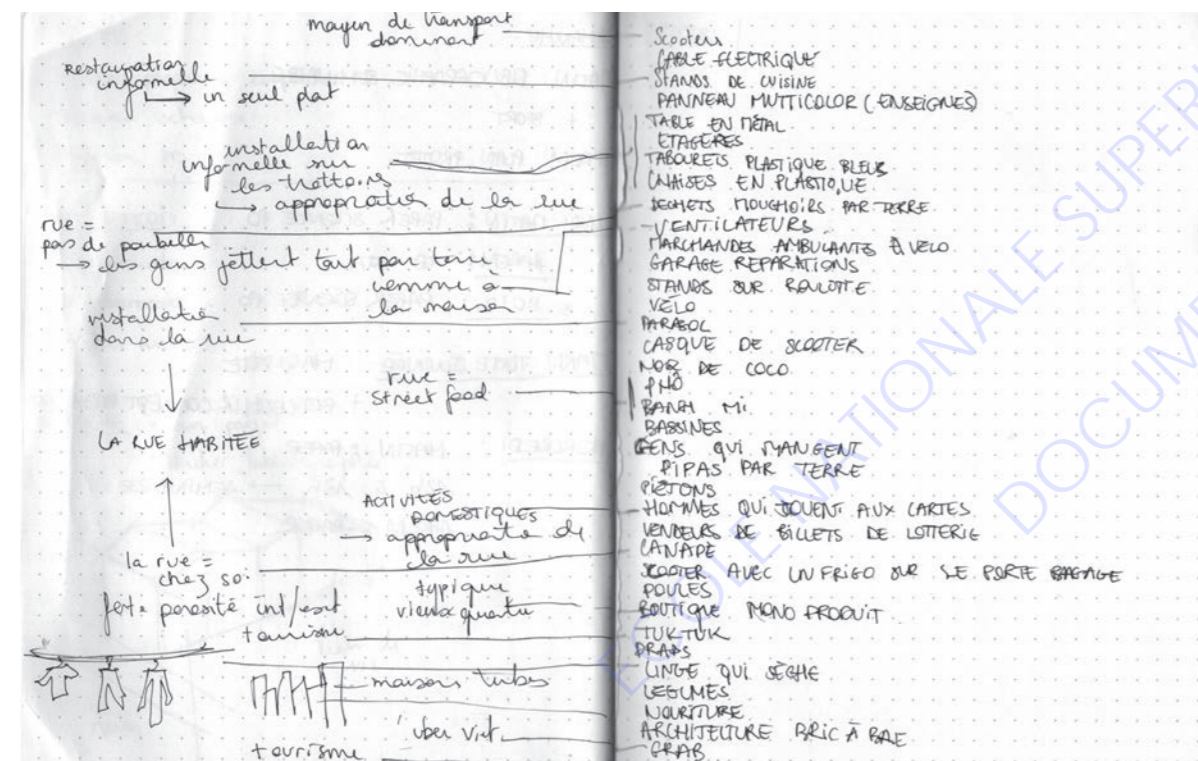 moyen de transport
dominant
Restauration
informelle
→ un seul plat
installation
informelle sur
les trottoirs
→ appropriation de la rue
rue =
pas de poubelles
→ les gens jettent tout par terre,
comme à
la maison
installation
dans la rue
rue =
street food
LA RUE HABITÉE
ACTIVITÉS
DOMESTIQUES
→ appropriation de
la rue
la rue =
chez soi
forte porosité int/ext
typique
vieux quartier
tourisme
maisons tubes
uber viet.
tourisme
Scooters
CABLE ELECTRIQUE
STANDS DE CUISINE
PANNEAU MUTTICOLOR (ENSEIGNES)
TABLE EN MÉTAL
ETAGÈRES
TABOURETS PLASTIQUE BLEUS
CHAISES EN PLASTIQUE
DECHETS MOUCHOIRS PAR TERRE
VENTILATEURS
MARCHANDES AMBULANTS À VELO
GARAGE REPARATIONS
STANDS SUR ROULOTTE
VÉLO
PARASOL
CASQUE DE SCOOTER
NOIX DE COCO
PHÔ
BANH MI
BASSINES
GENS QUI MANGENT
PIPAS PAR TERRE
PIÉTONS
HOMMES QUI JOUENT AUX CARTES
VENDEURS DE BILLETS DE LOTTERIE
CANAPÉ
SCOOTER AVEC UN FRIGO SUR LE PORTE BAGAGE
POULES
BOUTIQUE MONO PRODUIT
TUK TUK
DRAPS
LINGE QUI SÈCHE
LEGUMES
NOURITURE
ARCHITECTURE BRIC À BAE
GRAB
ECOLE NATIONALE SUPER
DOCUM